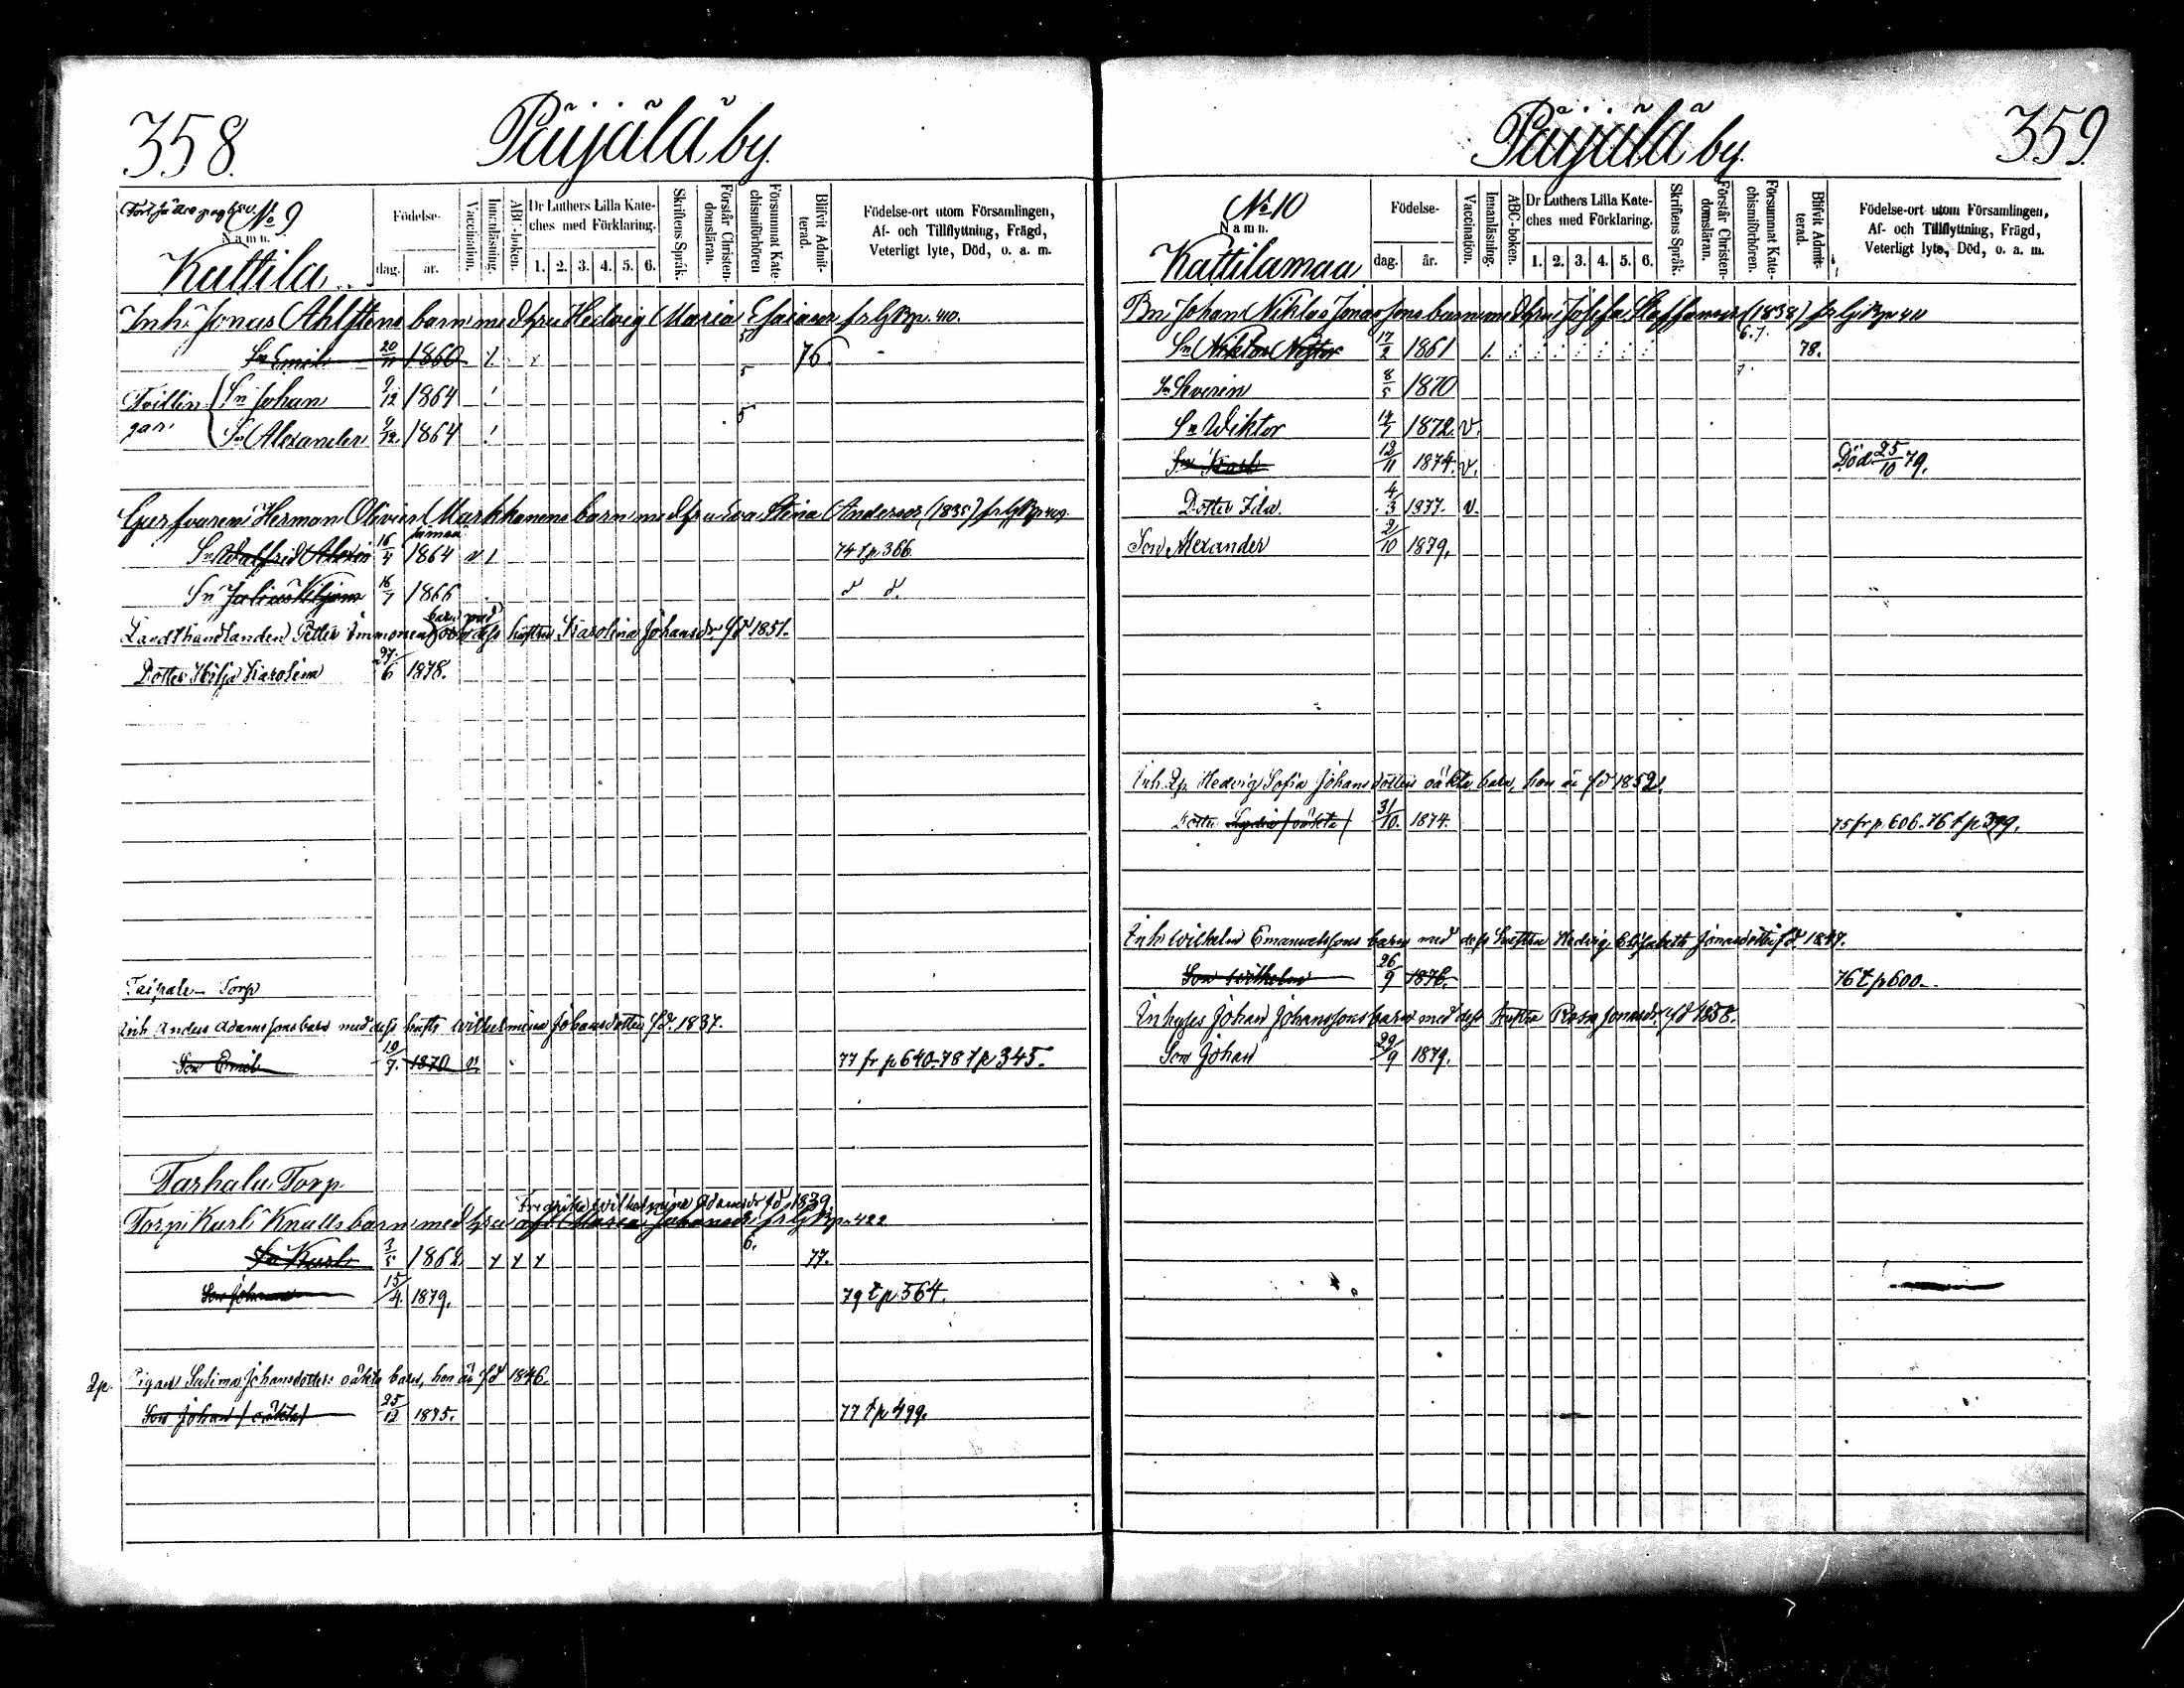 358.
Päijälä by.
No 9
Namn.
Kattila
Födelse-
dag. år.
Vaccination.
Innanläsning.
ABC-boken.
Dr Luthers Lilla Kate-
ches med Förklaring.
1. 2. 3. 4. 5. 6.
Skriftens Språk.
Förstår Christen-
domsläran.
Försummat Kate-
chismiförhören
Blifvit Admit-
terad.
Födelse-ort utom Församlingen,
Af- och Tillflyttning, Frägd,
Veterligt lyte, Död, o. a. m.
Inh. Jonas Ahlstens barn med hru Hedvig Maria Esaiasr fr lj Bp. 410.
Sn Emil 20/11 1860 76.
Tvillin-
gar
Sn Johan 9/12 1864
Sn Alexander 9/12 1864
Herman Olivier Markkanens barn med hru Eva Stina Andersr (1835)
Sn Walfrid 16/4 1864 v 74 t p 366
Sn 16/7 1866 d d.
Landthandlanden Petter Immonens barn med dess hustru Karolina Johansdr fd 1851.
Dotter Hilja Karolina 27/6 1878.
Taipale Torp
Inh Anders Adamssons barn med dess hustr Wilhelmina Johansdotter fd. 1837.
Son Emil 19/7. 1870 v. 77 fr p 640. 78 t p 345.
Tarhala Torp
Fredrika Wilhelmina Adamsdr fd 1839
Torp Karl Knuts barn med hru Maria Johansdr fr lj Bp 422
Sn Karl 3/5 1862 6. 77.
Son Johan 15/4. 1879. 79 t p 564.
Pigan Johansdotters oäkta barn, hon är fd 1846.
Son Johan (oäkta) 25/12 1875. 77 t p 499.
Päijälä by.
359
No 10
Namn.
Kattilamaa
Födelse-
dag. år.
Vaccination.
Innanläsning.
ABC-boken.
Dr Luthers Lilla Kate-
ches med Förklaring.
1. 2. 3. 4. 5. 6.
Skriftens Språk.
Förstår Christen-
domsläran.
Försummat Kate-
chismiförhören.
Blifvit Admit-
terad.
Födelse-ort utom Församlingen,
Af- och Tillflyttning, Frägd,
Veterligt lyte, Död, o. a. m.
Bn Johan Niklas Jonassons barn med hru Josefa Staffansdr (1838) fr lj Bp 411
Sn Nestor 17/2 1861 6.7. 78.
Sn Severin 8/5 1870 7.
Sn Wiktor 14/7 1872. v.
Sn Karl 12/11 1874. v. Död 25/10 79.
Dotter Ida. 4/3 1877. v.
Son Alexander 2/10 1879.
Inh. Qp. Hedvig Sofia Johansdotters oäkta barn, hon är fd 1852.
Dotter Lydia (oäkta) 31/10. 1874. 75 fr p. 606. 76 t p 399.
Inh Wilhelm Emanuelssons barn med dess hustru Hedvig Elisabeth Jonasdotter fd 1847.
Son Wilhelm 26/9 1876. 76 t p 600.
Inhyses Johan Johanssons barn med dess hustru Rosa Jonasdr. fd 1858.
Son Johan 29/9 1879.